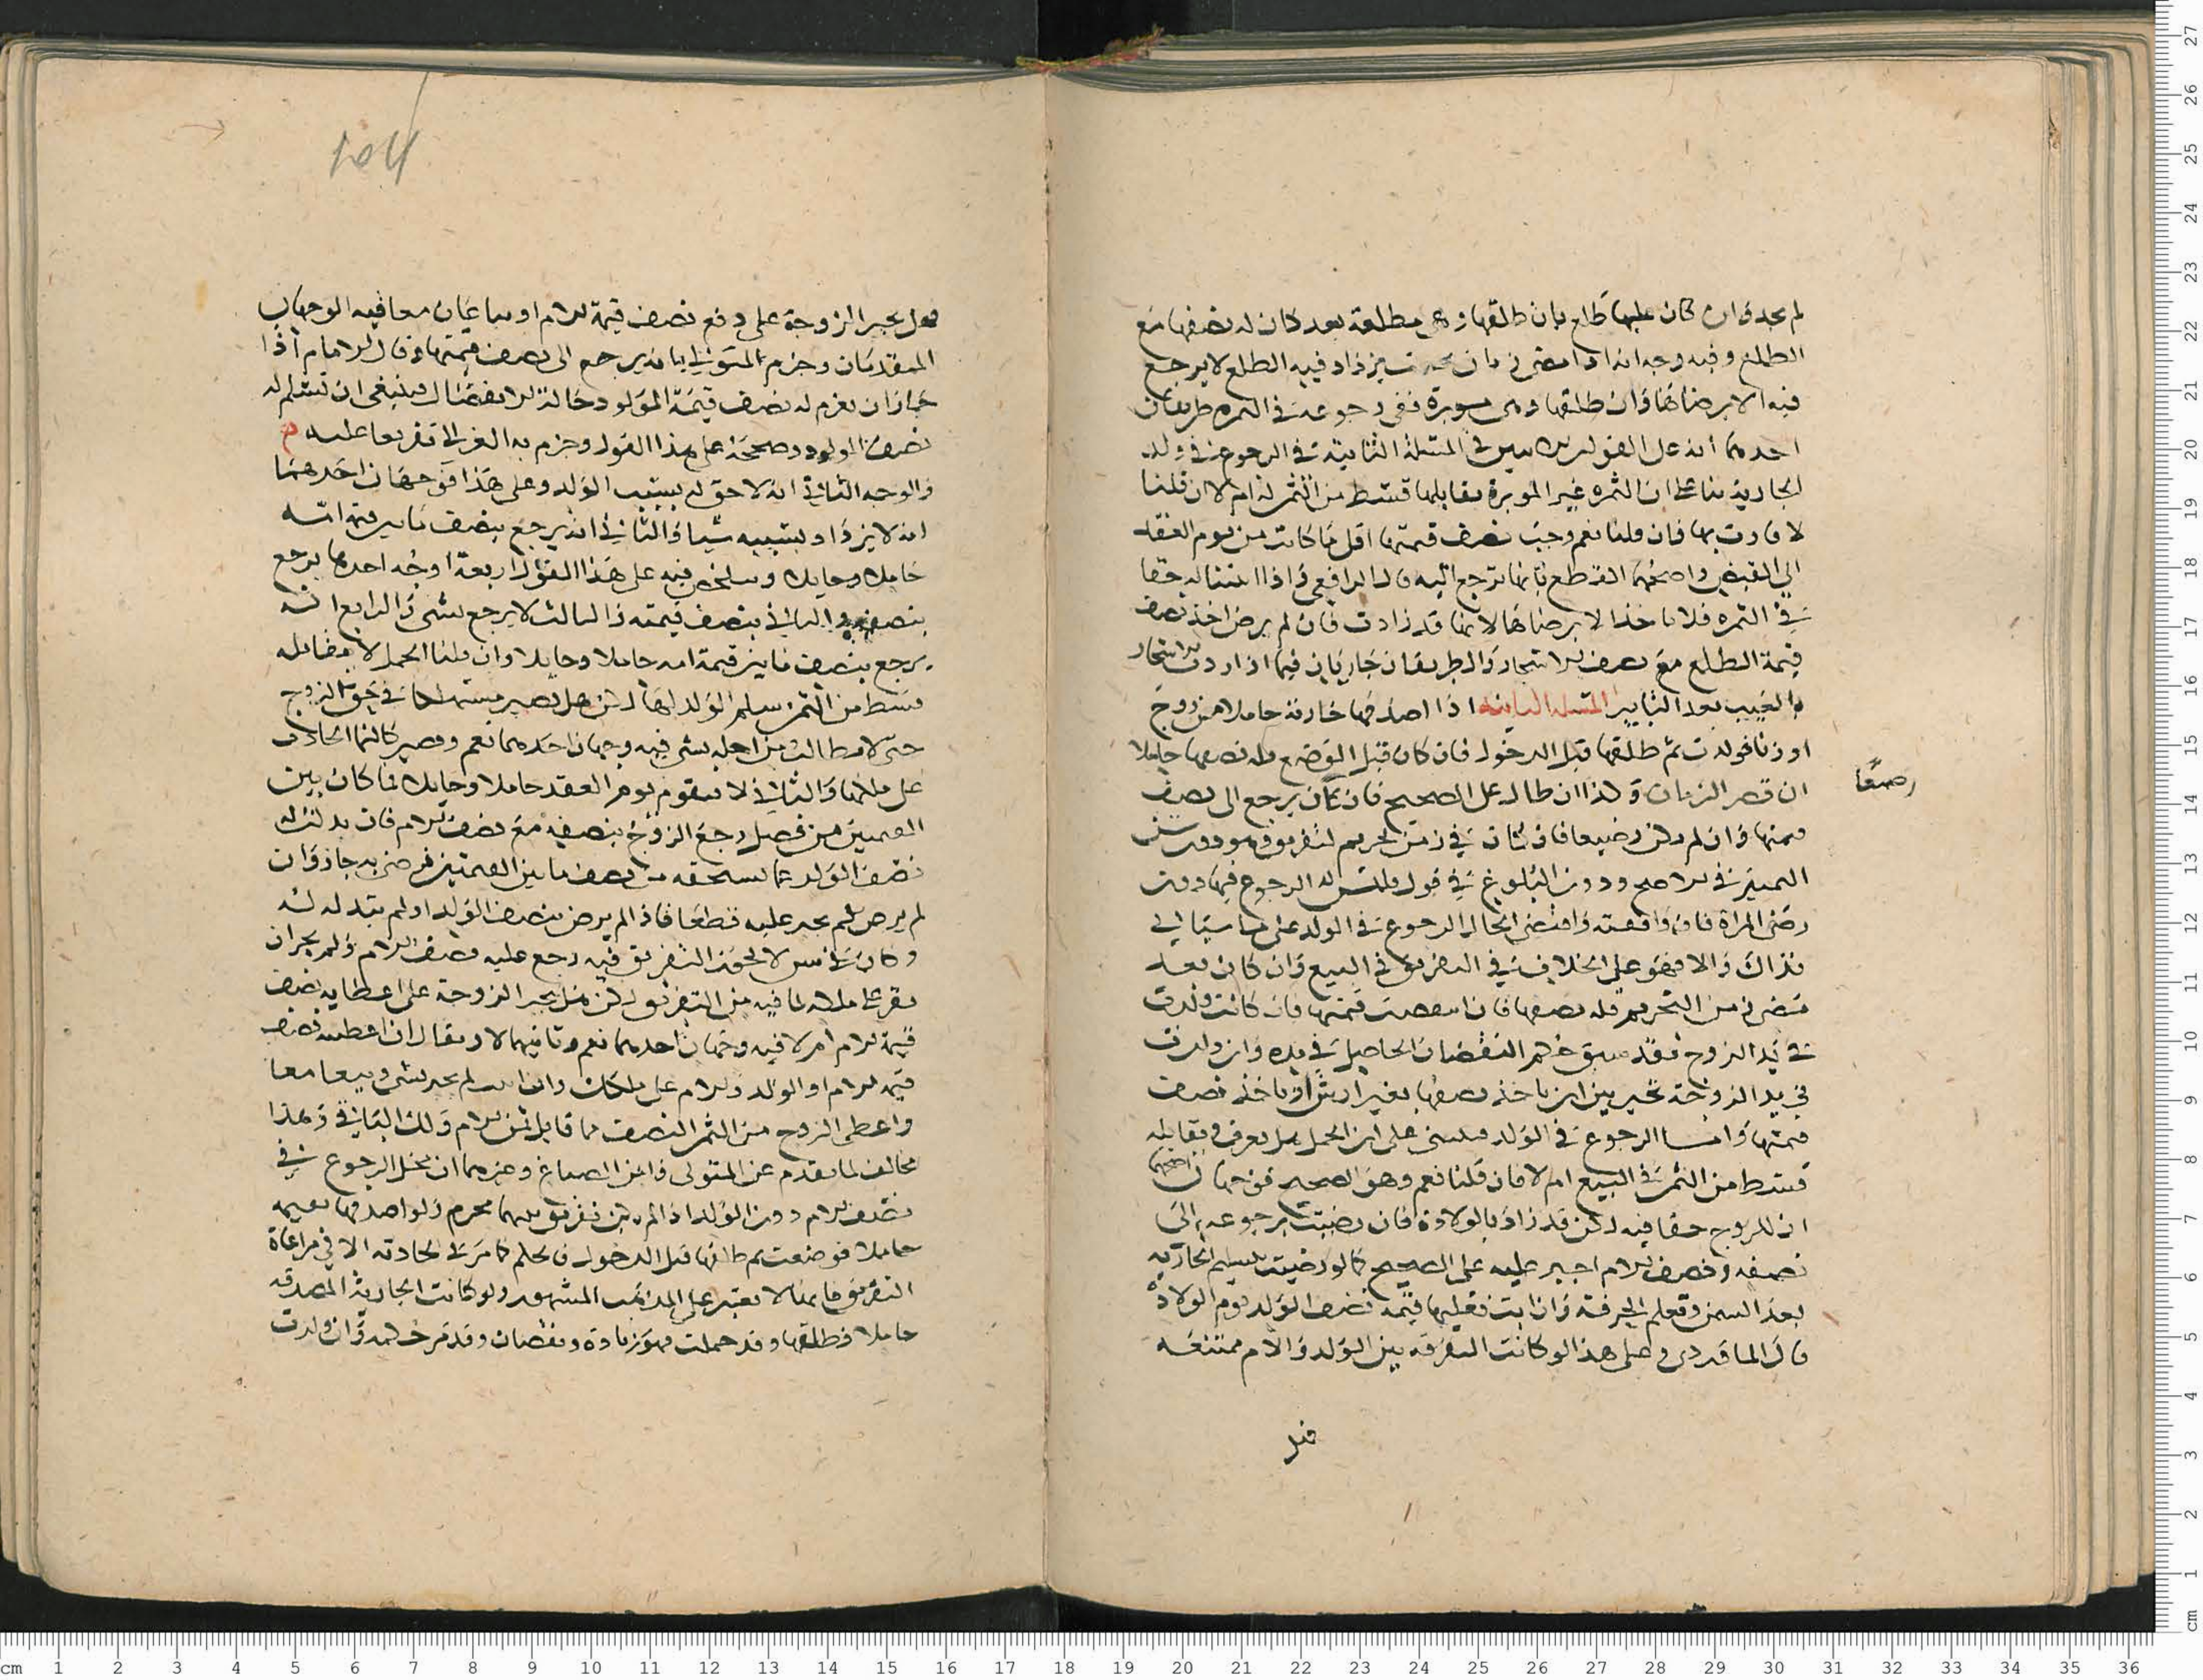 لم يجد وان كان عليها طلع بان طلقها وهي مطلعة بعد كان له نصفها مع
الطلع وفيه وجه انه اذا مضى زمان يزداد فيه الطلع لا يرجع
فيه الا برضاها وان طلقها وهي موبرة ففي رجوعه في الثمره طريقان
احدهما انه على القولين في المسئلة الثانية في الرجوع في ولد
الجارية بنا على ان الثمره غير الموبرة يقابلها قسط من الثمن ام لا ان قلنا
لا فازت بها فان قلنا نعم وجب نصف قيمتها اقل ما كانت من يوم العقد
الى القبض واصحهما القطع بانها ترجع اليه قال الرافعي واذا اثبتنا له حقا
في الثمره فلا ياخذ الا برضاها لانها قد زادت فان لم يرض اخذ نصف
قيمة الطلع مع نصف الاشجار والطريقان جاريان فيما اذا زدت الاشجار
المسئلة الثانية اذا اصدقها جارية حاملا من زوج
او زنا فولدت ثم طلقها قبل الدخول فان كان قبل الوضع فله نصفها حاملا
ان قصر الزمان وكذا ان طال على الصحيح فان كان يرجع الى نصف
رضيعا
قيمتها وان لم يكن رضيعا فان كان في زمن تحريم التفريق وهو دون سن
التمييز في الاصح ودون البلوغ في قول فليس له الرجوع فيها دون
رضى المراة فان وافقته واقتضى الحال الرجوع في الولد على ما سياتي
فذاك والا فهو على الخلاف في التفريق في البيع وان كان بعد
مضى زمن التحريم فله نصفها فان نقصت قيمتها فان كانت ولدت
في يد الزوج فقد سبق حكم النقصان الحاصل في يده وان ولدت
في يد الزوجة تخير بين ان ياخذ نصفها بغير ارش او ياخذ نصف
قيمتها واما الرجوع في الولد فيبنى على ان الحمل هل يعرف ويقابله
قسط من الثمن في البيع ام لا فان قلنا نعم وهو الصحيح فوجهان احدهما
ان للزوج حقا فيه لكن قد زاد بالولادة فان رضيت برجوعه الى
نصفه ونصف الام اجبر عليه على الصحيح كما لو رضيت بتسليم الجارية
بعد السمن وتعلم الحرفة وان ابت فعليها قيمة نصف الولد يوم الولادة
قال الماوردي وعلى هذا لو كانت التفرقة بين الولد والام ممتنعه
فهل
فهل يجبر الزوجة على دفع نصف قيمة الام او يباعان معا فيه الوجهان
المتقدمان وجزم المتولي بانه يرجع الى نصف قيمتها وقال الامام اذا
جاز ان يغرم له نصف قيمة المولود حالة الانفصال فينبغي ان تسلم له
نصف المولود وصححه على هذا القول وجزم به الغزالي تفريعا عليه
والوجه الثاني انه لا حق له بسبب الولد وعلى هذا فوجهان احدهما
انه لا يزداد بسببه شيا والثاني انه يرجع بنصف ما بين قيمة امه
حاملا وحايلا فيه على هذا القول اربعة اوجه احدها يرجع
بنصفه والثاني بنصف قيمته والثالث لا يرجع بشي والرابع انه
يرجع بنصف ما بين قيمة امه حاملا وحايلا وان قلنا الحمل لا يقابله
قسط من الثمن سلم الولد لها لكن هل يصير مستهلكا في حق الزوج
حتى لا يطالب من اجله بشي فيه وجهان احدهما نعم ويصير كالنما الحادث
على ملكها والثاني لا فيقوم يوم العقد حاملا وحايلا فما كان بين
القيمتين من فضل رجع الزوج بنصفه مع نصف الام فان بدلت له
نصف الولد عما يستحقه من نصف ما بين القيمتين فرضى به جاز وان
لم يرض لم يجبر عليه قطعا فاذا لم يرض بنصف الولد او لم تبدله له
وكان في سن لا يجوز التفريق فيه رجع عليه بنصف الام ولم يجز ان
يقر على ملكه لما فيه من التفريق لكن هل يجبر الزوجة على اعطايه نصف
قيمة الام ام لا فيه وجهان احدهما نعم وثانيهما لا ويقال ان اعطيته نصف
قيمة الام او الولد والام على ملكك وان لم تجبر بشي وبيعا معا
واعطى الزوج من الثمن النصف مما قابل ثمن الام ولك الباقي وهذا
مخالف لما تقدم عن المتولي وابن الصباغ وغيرهما ان محل الرجوع في
نصف الام دون الولد اذا لم يكن تفريق بينهما محرم ولو اصدقها بهيمة
حاملا فوضعت ثم طلقها قبل الدخول فالحكم كما مر في الجارية الا في مراعاة
التفريق فانها لا يعتبر على المذهب المشهور ولو كانت الجارية المصدقة
حاملا فطلقها وقد حملت فهو زيادة ونقصان وقد مر حكمه وان ولدت